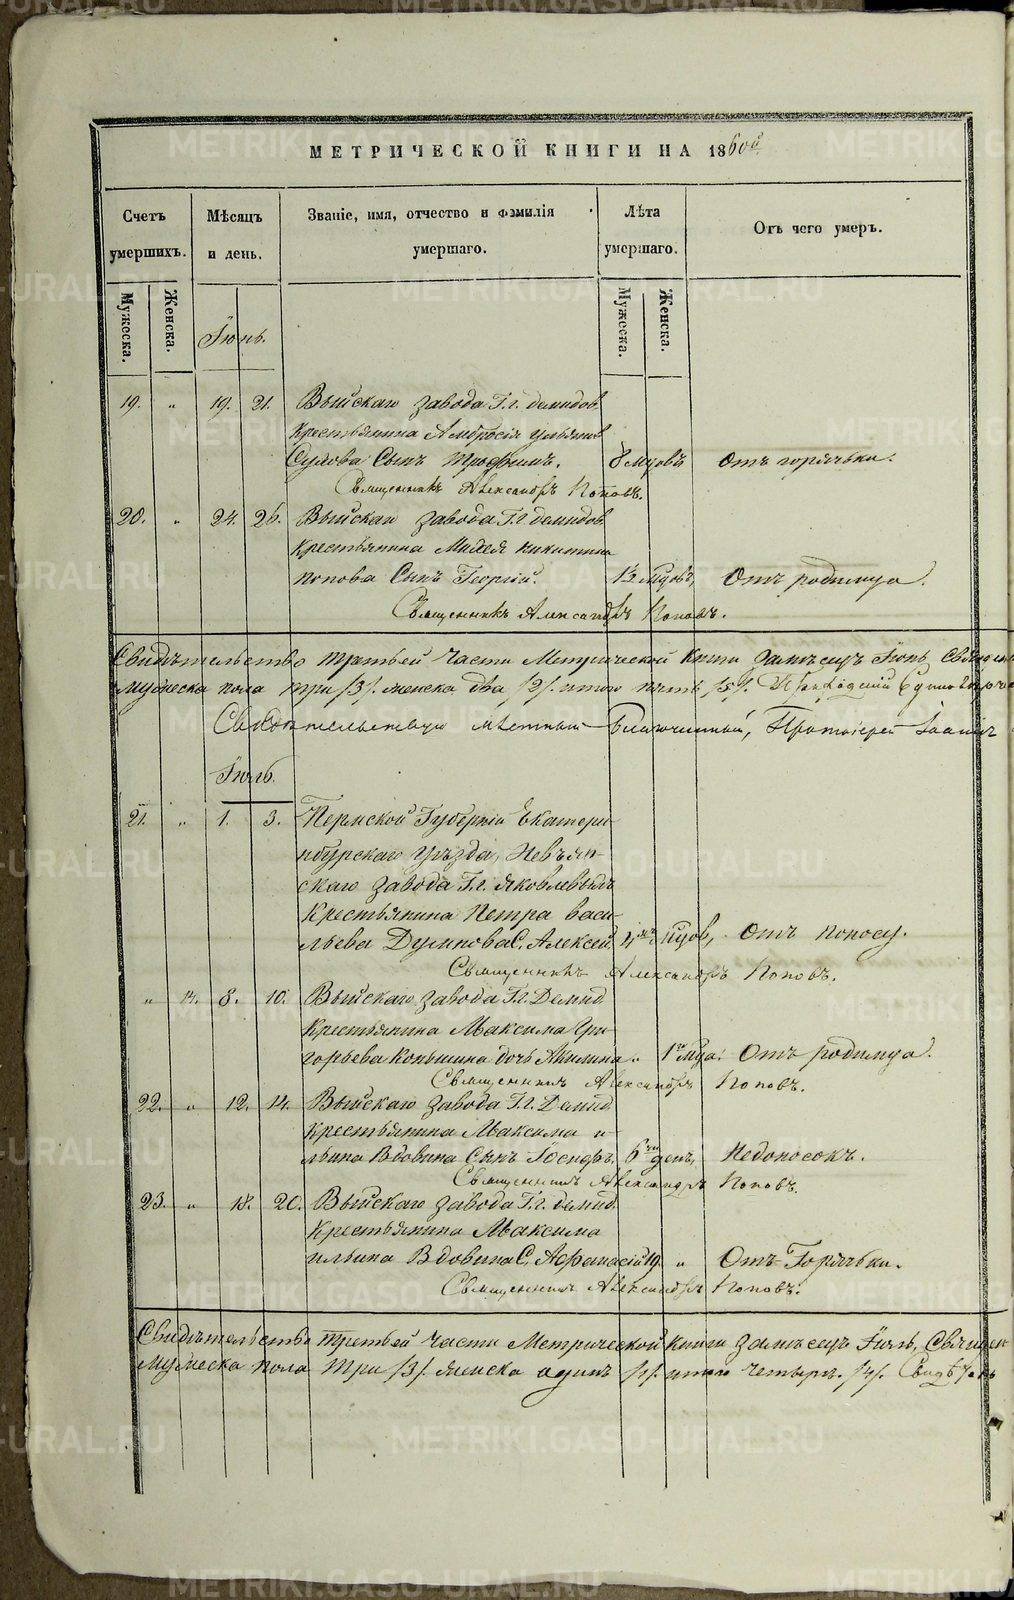 МЕТРИЧЕСКОЙ КНИГИ НА 1860й
Счетъ умершихъ. Мѣсяцъ и день. Званіе, имя, отчество и фамилія умершаго. Лѣта умершаго. Отъ чего умеръ.
Мужеска. Женска. Мужеска. Женска.
Іюнь.
19. „ 19. 21. Выйскаго завода Г.г. демидов.
крестьянина Амбросія ульянов
Сулова Сынъ Трофимъ. 8 мцовъ Отъ горячьки.
Священникъ Александръ Поповъ.
20. „ 24. 26. Выйскаго завода Г.г демидов.
крестьянина Михея никитина
попова Сынъ Георгій. 1½ мцовъ, Отъ родимца.
Священникъ Александръ Поповъ.
Свидѣтельство третьей части Метрической книги за мѣсецъ Іюнь
мужеска пола три /3/. женска два /2/. итого пять /5/.
Свидѣтельствую мѣстный Благочинный, Протоіерей Іоаннъ
Іюль.
21. „ 1. 3. Пермской Губерніи Екатери-
нбурскаго Уѣзда, Невьян-
скаго завода Г.г. Яковлевыхъ
крестьянина Петра васи-
льева Думнова С. Алексей, 4 мцов, Отъ поносу.
Священникъ Александръ Поповъ.
„ 14. 8. 10. Выйскаго завода Г.г. Демид.
крестьянина Максима Гри-
горьева Коньшина дочь Акилина „ 1го мца. Отъ родимца.
Священникъ Александръ Поповъ.
22. „ 12. 14. Выйскаго завода Г.г. Демид.
крестьянина Максима и-
льина Вдовина Сынъ Іосифъ. 6 ден, Недоносокъ.
Священникъ Александръ Поповъ.
23. „ 18. 20. Выйскаго завода Г.г. демид.
крестьянина Максима
ильина Вдовина С. Афанасій 19. „ Отъ Горячьки.
Священникъ Александръ Поповъ.
Свидѣтельство третьей части Метрической книги за мѣсецъ Іюль,
мужеска пола три /3/. женска одинъ /1/. итого четыре. /4/.
METRIKI.GASO-URAL.RU